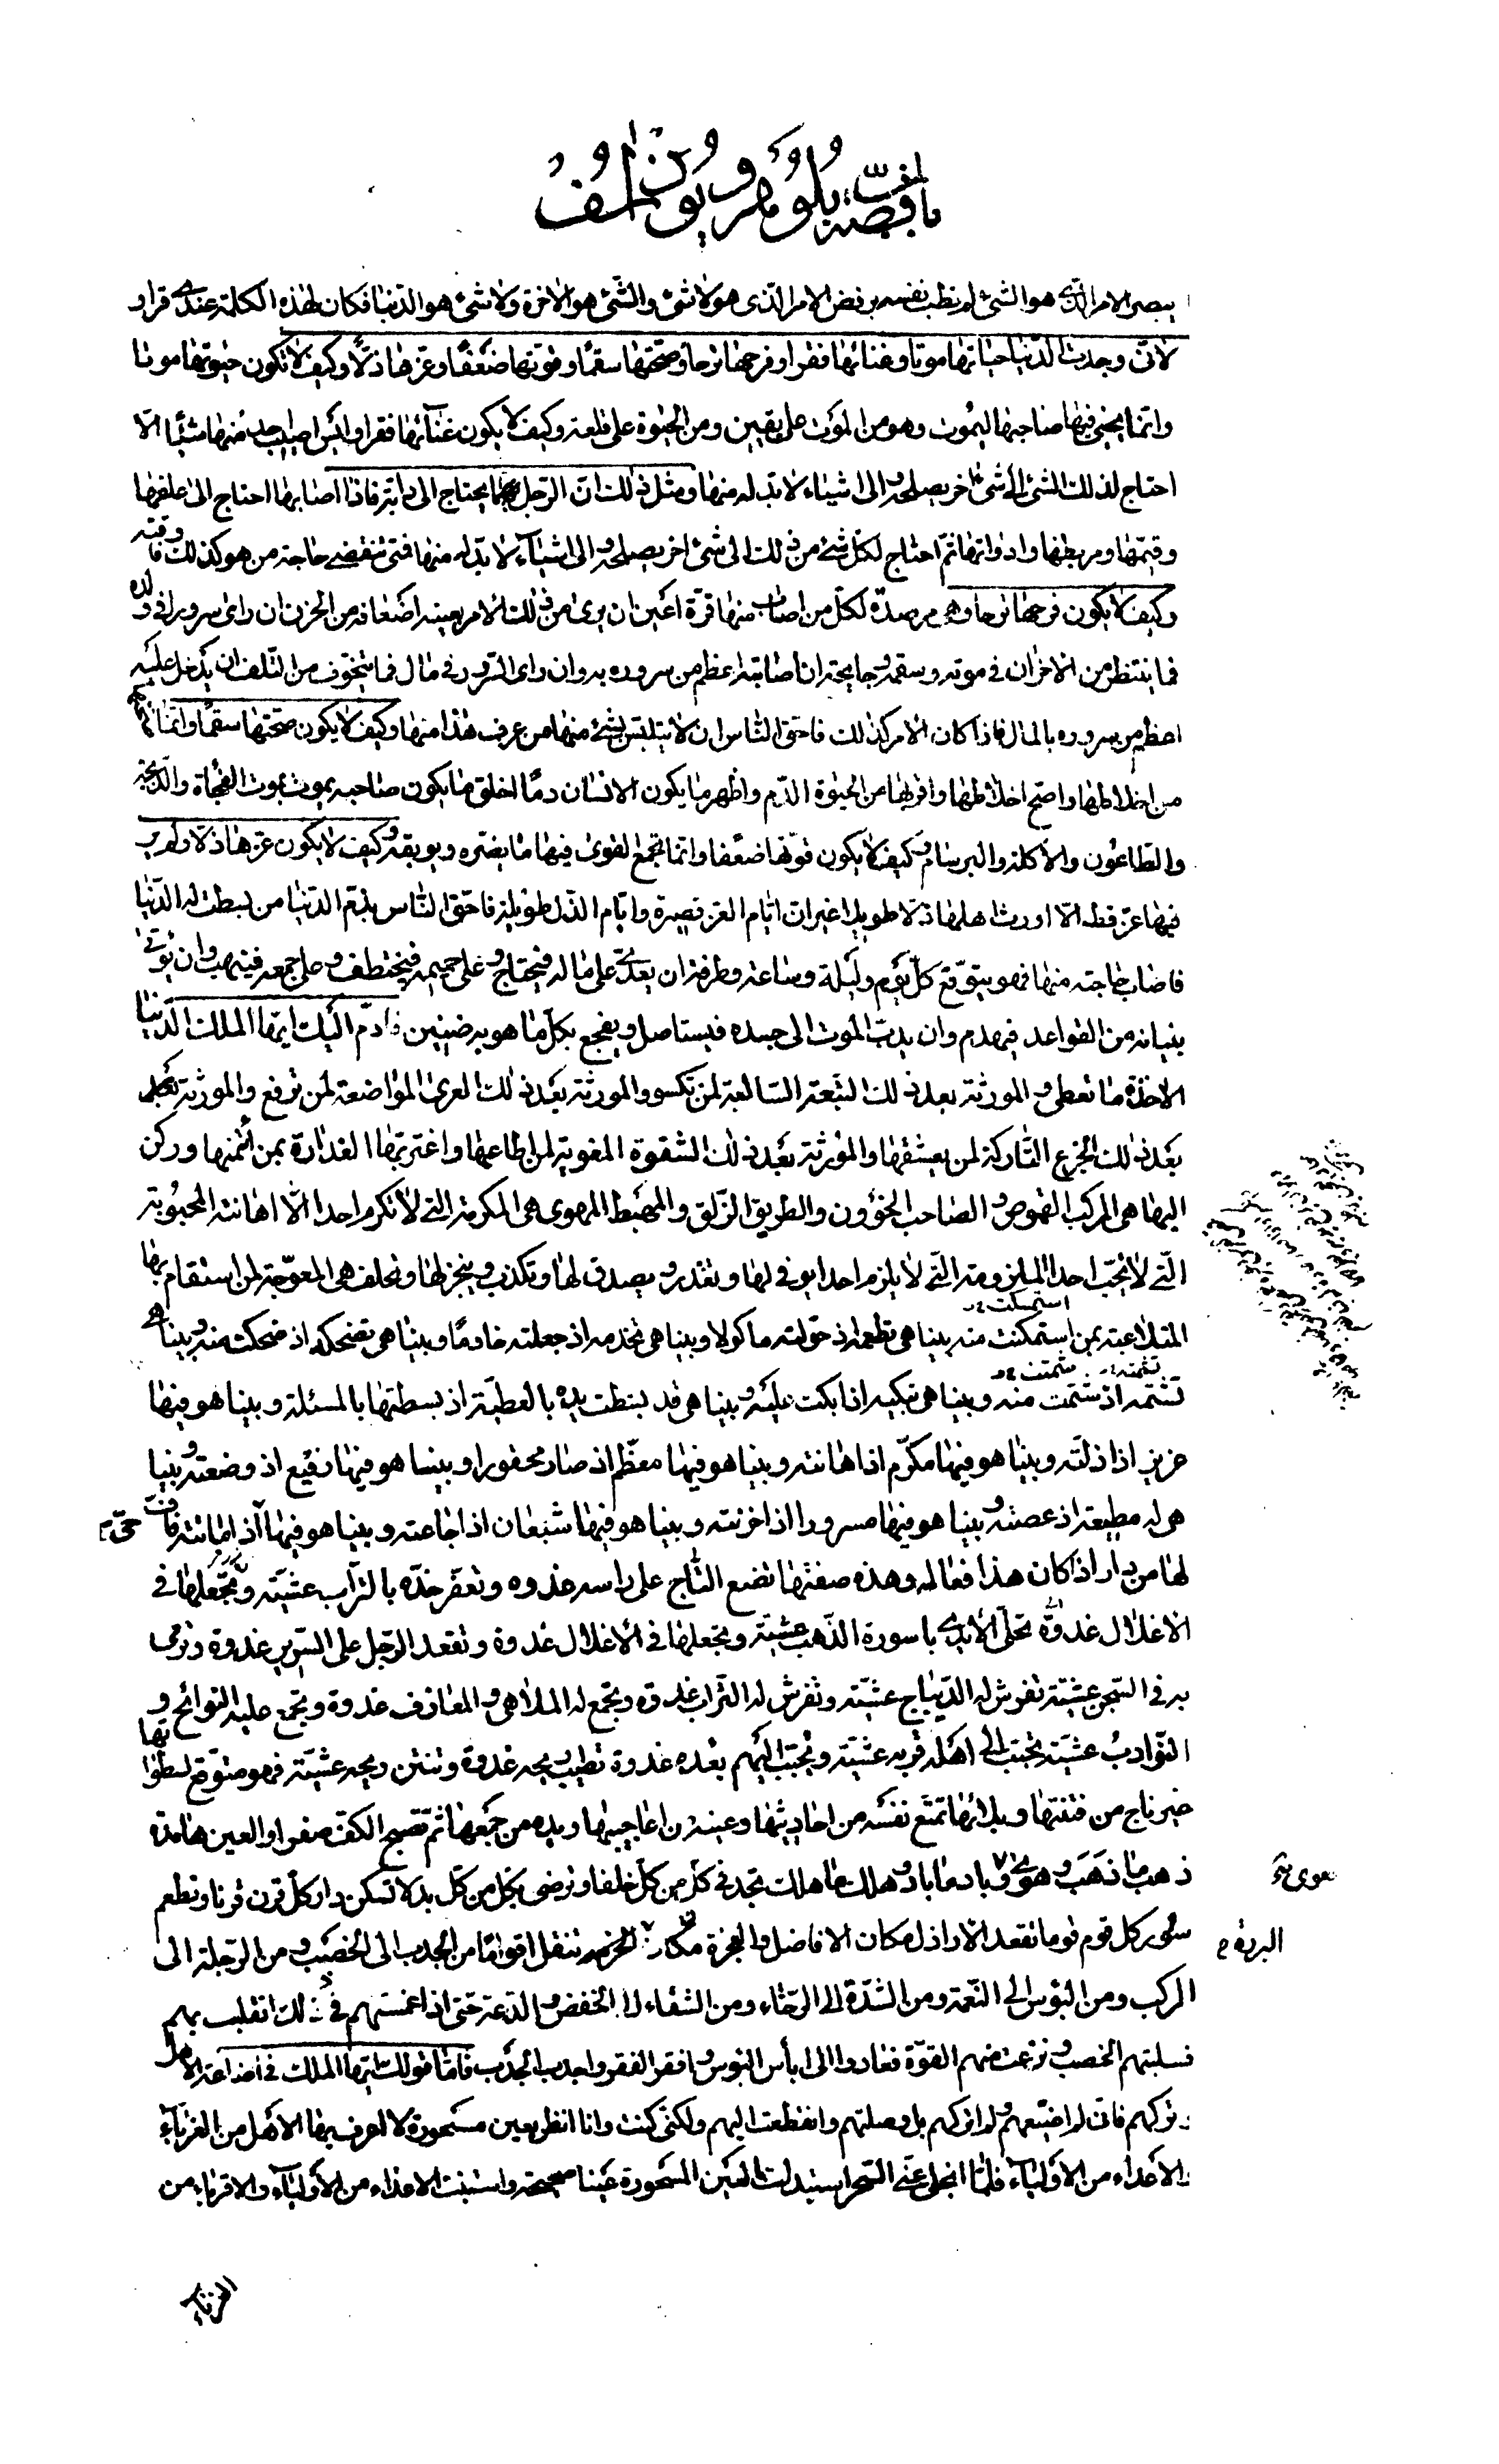 ما في قصة بلوهر ويوذاسف
يبصر الامر الذى هو الشئ لم تطب نفسه برفض الامر الذى هو لا شئ والشئ هو الاخرة ولا شئ هو الدنيا فكان لهذه الكلمة عندى قرار و
لانى وجدت الدنيا حياتها موتا وغنائها فقرا وفرحها ترحا وصحتها سقما وقوتها ضعفا وعزها ذلا وكيف لا تكون حيوتها موتا
وانما يحيى فيها صاحبها ليموت وهو من الموت على يقين ومن الحيوة على قلعة وكيف لا يكون غنائها فقرا وليس اصيب احد منها شيئا الا
احتاج لذلك الشئ الى شئ اخر يصلحه والى اشياء لا بد له منها ومثل ذلك ان الرجل ربما يحتاج الى دابة فاذا اصابها احتاج الى علفها
وقيمها ومربطها وادواتها ثم احتاج لكل شئ من ذلك الى شئ اخر يصلحه والى اشياء لا بد له منها فمتى تنقضى حاجة من هو كذلك وفاقته
وكيف لا يكون فرحها ترحا وهى مرصدة لكل من اصاب منها قرة اعين ان يرى من ذلك الامر بعينه اضعافه من الحزن ان راى سرورا فى ولده
فما ينتظر من الاحزان فى موته وسقمه وجايحة ان اصابته اعظم من سروره به وان راى السرور فى مال فما يتخوف من التلف ان يدخل عليه
اعظم من سروره بالمال فاذا كان الامر كذلك فاحق الناس ان لا يتلبس بشئ منها من عرف هذا منها وكيف لا يكون صحتها سقما وانما صحتها
من اخلاطها واصح اخلاطها واقربها من الحيوة الدم واظهر ما يكون الانسان دما اخلق ما يكون صاحبه بموت الفجاة والذبحة
والطاعون والاكلة والبرسام وكيف لا يكون قوتها ضعفا وانما تجمع القوى فيها ما يضره ويوبقه وكيف لا يكون عزها ذلا ولم ير
فيها عز قط الا اورث اهلها ذلا طويلا غير ان ايام العز قصيرة وايام الذل طويلة فاحق الناس بذم الدنيا من بسطت له الدنيا
فاصاب حاجته منها فهو يتوقع كل يوم وليلة وساعة وطرفة ان يعدى على ماله فيحتاج وعلى حميمه فيختطف وعلى جمعه فينهب وان يؤتى
بنيانه من القواعد فيهدم وان يدب الموت الى جسده فيستاصل ويفجع بكل ما هو به ضنين فاذم اليك ايها الملك الدنيا
الاخذة ما تعطى والمورثة بعد ذلك التبعة السالبة لمن تكسو والمورثة بعد ذلك العرى المواضعة لمن ترفع والمورثة بعد
بعد ذلك الجزع التاركة لمن يعشقها والمورثة بعد ذلك الشقوة المغوية لمن اطاعها واغتر بها الغدارة بمن ائتمنها وركن
اليها هى المركب القموص والصاحب الخؤون والطريق الزلق والمهبط المهوى هى المكرمة التى لا تكرم احدا الا اهانته المحبوبة
التى لا تحب احدا الملزومة التى لا يلزم احدا يوفى لها وتغدر ويصدق لها وتكذب وينجز لها وتخلف هى المعوجة لمن استقام بها
استمسكت
المتلاعبة بمن استمكنت منه بينا هى تطعمه اذ حولته ماكولا وبينا هى تخدمه اذ جعلته خادما وبينا هى تضحكه اذ ضحكت منه وبينا هى
تشمته شمتت
تشتمه اذ شتمت منه وبينا هى تبكيه اذ ابكت عليه وبينا هى قد بسطت يده بالعطية اذ بسطتها بالمسئلة وبينا هو فيها
عزيز اذ اذلته وبينا هو فيها مكرم اذ اهانته وبينا هو فيها معظم اذ صار محقورا وبينا هو فيها رفيع اذ وضعته وبينا
هى له مطيعة اذ عصته وبينا هو فيها مسرورا اذ احزنته وبينا هو فيها شبعان اذ اجاعته وبينا هو فيها حى اذ اماتته فاف
لها من دار اذ كان هذا فعالها وهذه صفتها تضع التاج على راسه غدوة وتعفر خده بالتراب عشية وتجعلها فى
الاغلال غدوة تحلى الايدى باسورة الذهب عشية وتجعلها فى الاغلال غدوة وتقعد الرجل على السرير غدوة وترمى
به فى السجن عشية تفرش له الديباج عشية وتفرش له التراب غدوة وتجمع له الملاهى والمعازف غدوة وتجمع عليه النوائح و
النوادب عشية تحبب الى اهله قربه عشية وتحبب اليهم بعده غدوة تطيب ريحه غدوة وتنتن ريحه عشية فهو متوقع لسطواتها
غير ناج من فتنتها وبلائها تمتع نفسه من احاديثها وعينه من اعاجيبها ويده من جمعها ثم تصبح الكف صفرا والعين هامدة
ذهب ما ذهب وهوى وباد ما باد وهلك ما هلك تجد فى كل من كل خلفا وترضى بكل من كل بدلا تسكن دار كل قرن قرنا وتطعم
سؤر كل قوم قوما تقعد الاراذل مكان الافاضل والعجزة مكان الحزمة تنقل اقواما من الجدب الى الخصب ومن الرجلة الى
البررة
المركب ومن البؤس الى النعمة ومن الشدة الى الرخاء ومن الشقاء الى الخفض والدعة حتى اذا غمستهم فى ذلك انقلبت بهم
فسلبتهم الخصب ونزعت منهم القوة فعادوا الى ابأس البؤس وافقر الفقر واجدب الجدب فاما قولك ايها الملك فى اضاعة الاهل
وتركهم فانى لم اضيعهم ولم اتركهم بل وصلتهم وانقطعت اليهم ولكنى كنت وانا انظر بعين مسحورة لا اعرف بها الاهل من الغرباء
ولا الاعداء من الاولياء فلما انجلى عنى السحر استبدلت بالعين المسحورة عينا صحيحة واستبنت الاعداء من الاولياء والاقرباء من
الغرباء